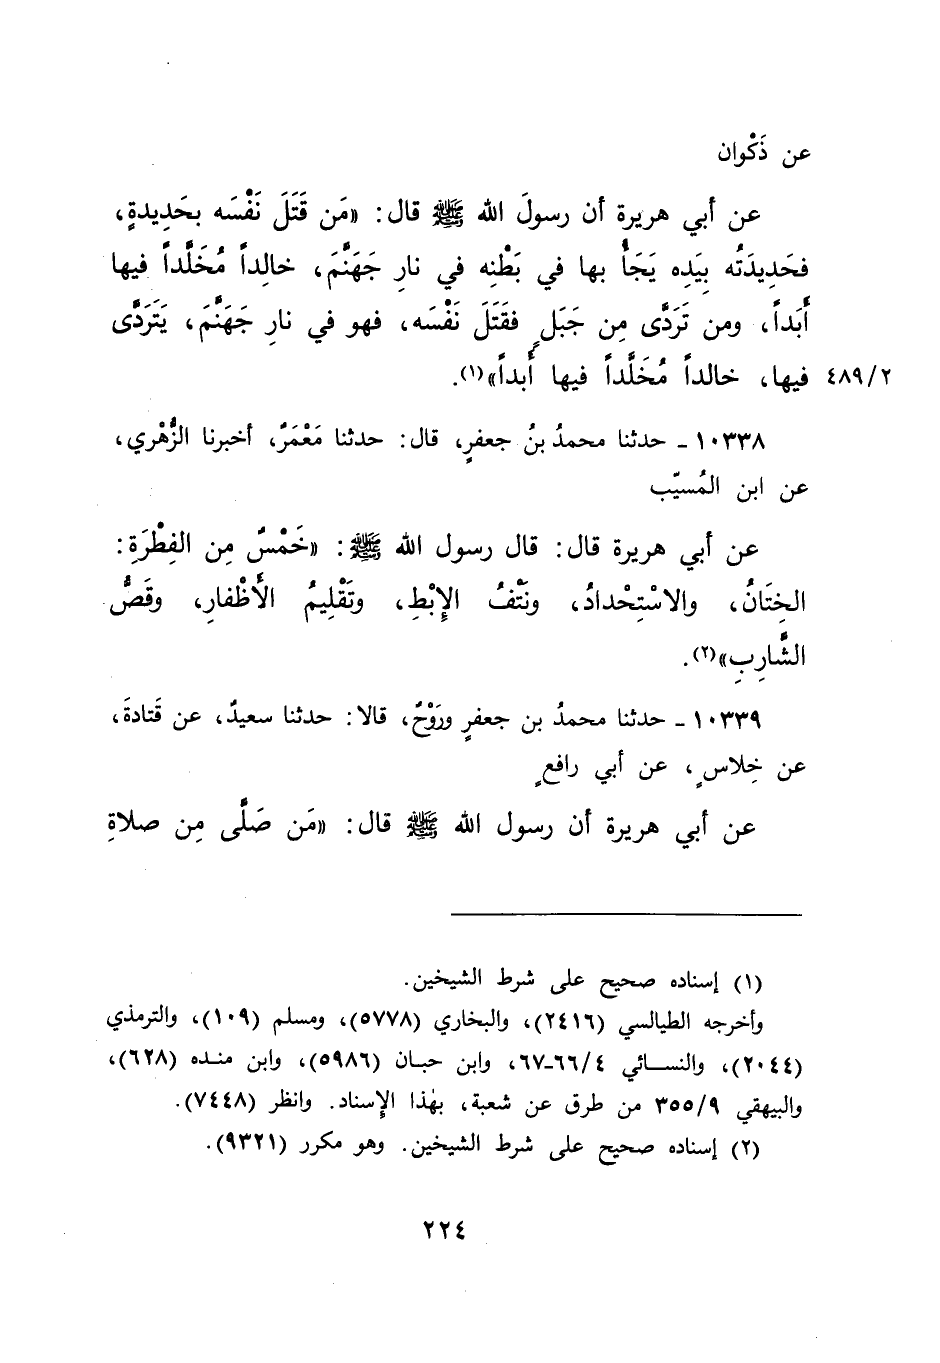 عن ذَكْوان
عن أبي هريرة أن رسولَ الله ﷺ قال: «مَن قَتَلَ نَفْسَه بحَدِيدةٍ،
فحَدِيدَتُه بِيَدِه يَجَأُ بها في بَطْنِه في نارِ جَهَنَّمَ، خالِداً مُخَلَّداً فيها
أَبَداً، ومن تَرَدَّى مِن جَبَلٍ فقَتَلَ نَفْسَه، فهو في نارِ جَهَنَّمَ، يَتَرَدَّى
فيها، خالداً مُخَلَّداً فيها أَبداً»(١). ٤٨٩/٢
١٠٣٣٨ - حدثنا محمدُ بنُ جعفرٍ، قال: حدثنا مَعْمَرٌ، أخبرنا الزُّهْري،
عن ابن المُسيّب
عن أبي هريرة قال: قال رسول الله ﷺ: «خَمْسٌ مِن الفِطْرَةِ:
الخِتَانُ، والاسْتِحْدادُ، ونَتْفُ الإِبْطِ، وتَقْلِيمُ الأَظْفارِ، وقَصُّ
الشَّارِبِ»(٢).
١٠٣٣٩ - حدثنا محمدُ بن جعفرٍ ورَوْحٌ، قالا: حدثنا سعيدٌ، عن قَتادةَ،
عن خِلاسٍ، عن أبي رافعٍ
عن أبي هريرة أن رسول الله ﷺ قال: «مَن صَلَّى مِن صلاةِ
(١) إسناده صحيح على شرط الشيخين.
وأخرجه الطيالسي (٢٤١٦)، والبخاري (٥٧٧٨)، ومسلم (١٠٩)، والترمذي
(٢٠٤٤)، والنسائي ٦٦/٤-٦٧، وابن حبان (٥٩٨٦)، وابن منده (٦٢٨)،
والبيهقي ٣٥٥/٩ من طرق عن شعبة، بهٰذا الإِسناد. وانظر (٧٤٤٨).
(٢) إسناده صحيح على شرط الشيخين. وهو مكرر (٩٣٢١).
٢٢٤